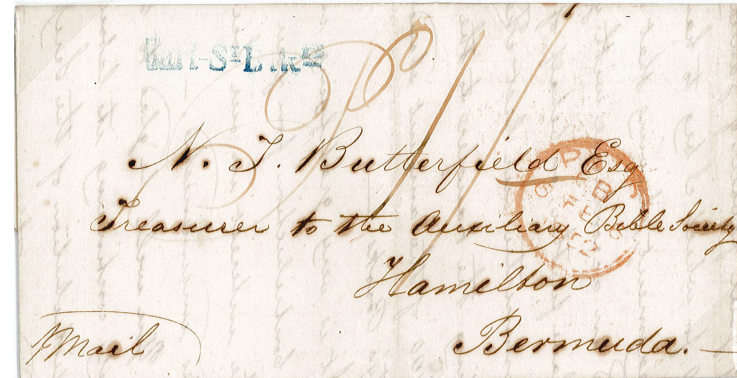 N. T. Butterfield Esq
Treasurer to the Auxiliary Bible Society
Hamilton
Bermuda.
Mail